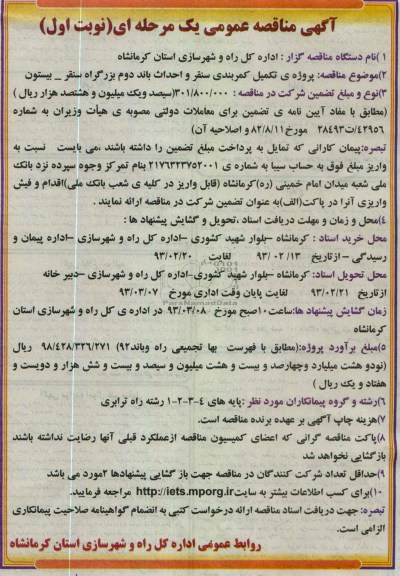 آگهی مناقصه عمومی یک مرحله ای(نوبت اول)
۱)نام دستگاه مناقصه گزار : اداره کل راه و شهرسازی استان کرمانشاه
۲)موضوع مناقصه: پروژه ی تکمیل کمربندی سنقر و احداث باند دوم بزرگراه سنقر _ بیستون
۳)نوع و مبلغ تضمین شرکت در مناقصه : ۳۰۱/۸۰۰/۰۰۰(سیصد ویک میلیون و هشتصد هزار ریال )
(مطابق با مفاد آیین نامه ی تضمین برای معاملات دولتی مصوبه ی هیأت وزیران به شماره
۴۲۹۵۶/ت۲۸۴۹۳ مورخ۸۲/۸/۱۱و اصلاحیه آن)
تبصره:پیمان کارانی که تمایل به پرداخت مبلغ تضمین را داشته باشند ،می بایست نسبت به
واریز مبلغ فوق به حساب سیبا به شماره ی ۲۱۷۶۳۲۳۷۵۲۰۰۱ بنام تمرکز وجوه سپرده نزد بانک
ملی شعبه میدان امام خمینی (ره)کرمانشاه (قابل واریز در کلیه ی شعب بانک ملی)اقدام و فیش
واریزی آنرا در پاکت(الف)به عنوان تضمین شرکت در مناقصه ارائه نمایند .
۴)محل و زمان و مهلت دریافت اسناد ،تحویل و گشایش پیشنهاد ها :
محل خرید اسناد : کرمانشاه –بلوار شهید کشوری –اداره کل راه و شهرسازی –اداره پیمان و
رسیدگی – ازتاریخ ۹۳/۰۲/۱۳ لغایت ۹۳/۰۲/۲۰
محل تحویل اسناد: کرمانشاه –بلوار شهید کشوری-اداره کل راه و شهرسازی –دبیر خانه
ازتاریخ ۹۳/۰۲/۲۱ لغایت پایان وقت اداری مورخ ۹۳/۰۳/۰۷
زمان گشایش پیشنهاد ها:ساعت۱۰صبح مورخ ۹۳/۰۳/۰۸ در اداره ی کل راه و شهرسازی استان
کرمانشاه
۵)مبلغ برآورد پروژه:(مطابق با فهرست بها تجمیعی راه وباند۹۲) ۹۸/۴۲۸/۳۲۶/۲۷۱ ریال
(نودو هشت میلیارد وچهارصد و بیست و هشت میلیون و سیصد و بیست و شش هزار و دویست و
هفتاد و یک ریال )
۶)رشته و گروه پیمانکاران مورد نظر :پایه های ۴-۳-۲-۱ رشته راه ترابری
۷)هزینه چاپ آگهی بر عهده برنده مناقصه است.
۸)پاکت مناقصه گرانی که اعضای کمیسیون مناقصه ازعملکرد قبلی آنها رضایت نداشته باشند
بازگشایی نخواهد شد
۹)حداقل تعداد شرکت کنندگان در مناقصه جهت باز گشایی پیشنهادها ۲مورد می باشد
۱۰)برای کسب اطلاعات بیشتر به سایتhttp://iets.mporg.ir مراجعه فرمایید.
تبصره: جهت دریافت اسناد مناقصه ارائه درخواست کتبی به انضمام گواهینامه صلاحیت پیمانکاری
الزامی است.
روابط عمومی اداره کل راه و شهرسازی استان کرمانشاه